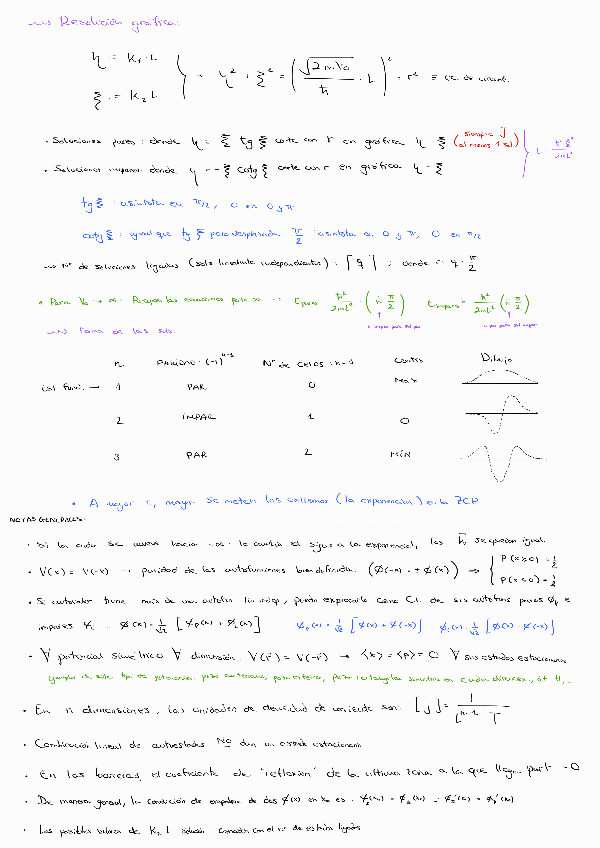 Resolución gráfica:
η = K₁·L
ξ = K₂·L
→ η² + ξ² = (√2mV₀ / ħ · L)² = r² ≡ ec. de circunf.
• Soluciones pares: donde η = ξ tg ξ corte con r en gráfica η-ξ (siempre al menos 1 sol)
• Soluciones impares: donde η = -ξ cotg ξ corte con r en gráfica η-ξ
tg ξ: asíntota en π/2, 0 en 0 y π
cotg ξ: igual que tg ξ pero desplazada π/2 : asíntota en 0 y π, 0 en π/2
Nº de soluciones ligadas (sols linealmente independientes): ⌈q⌉ ; donde r = q · π/2
• Para V₀ → ∞ Recupero las ecuaciones pozo ∞ E pares ħ²/2mL² (n π/2) E impares = ħ²/2mL² (n π/2)
n impar para sol par n par para sol impar
Forma de las sols:
n PARIDAD: (-1)ⁿ⁻¹ Nº de ceros: n-1 Centro Dibujo
(sol fund.) → 1 PAR 0 MÁX
2 IMPAR 1 0
3 PAR 2 MÍN
• A mayor n, mayor se meten los extremos (la exponencial) en la ZCP
NOTAS GENERALES:
• Si la onda se mueve hacia -∞ le cambia el signo a la exponencial, los K se quedan igual.
• V(x) = V(-x) → paridad de las autofunciones bien definida. (ϕ(-x) = ± ϕ(x)) → { P(x>0) = 1/2 P(x<0) = 1/2
• Si autovalor tiene más de una autofun lin indep, puedo expresarlo como C.L. de sus autofuns pares ϕp e
impares ϕi. ϕ(x) = 1/√2 [ϕp(x) + ϕi(x)] ϕp(x) = 1/√2 [ϕ(x) + ϕ(-x)] ϕi(x) = 1/√2 [ϕ(x) - ϕ(-x)]
• ∀ potencial simétrico ∀ dimensión. V(r) = V(-r) → ⟨x⟩ = ⟨p⟩ = 0 ∀ sus estados estacionarios
ejemplo de este tipo de potenciales: pozo
• En n dimensiones, las unidades de densidad de corriente son: [j] = 1 / Lⁿ⁻¹ T
• Combinación lineal de autoestados NO dan un estado estacionario
• En las barreras, el coeficiente de "reflexión" de la última zona a la que llega part = 0
• De manera general, la condición de empalme de dos ϕ(x) en x₀ es
• Los posibles valores de K₂ L